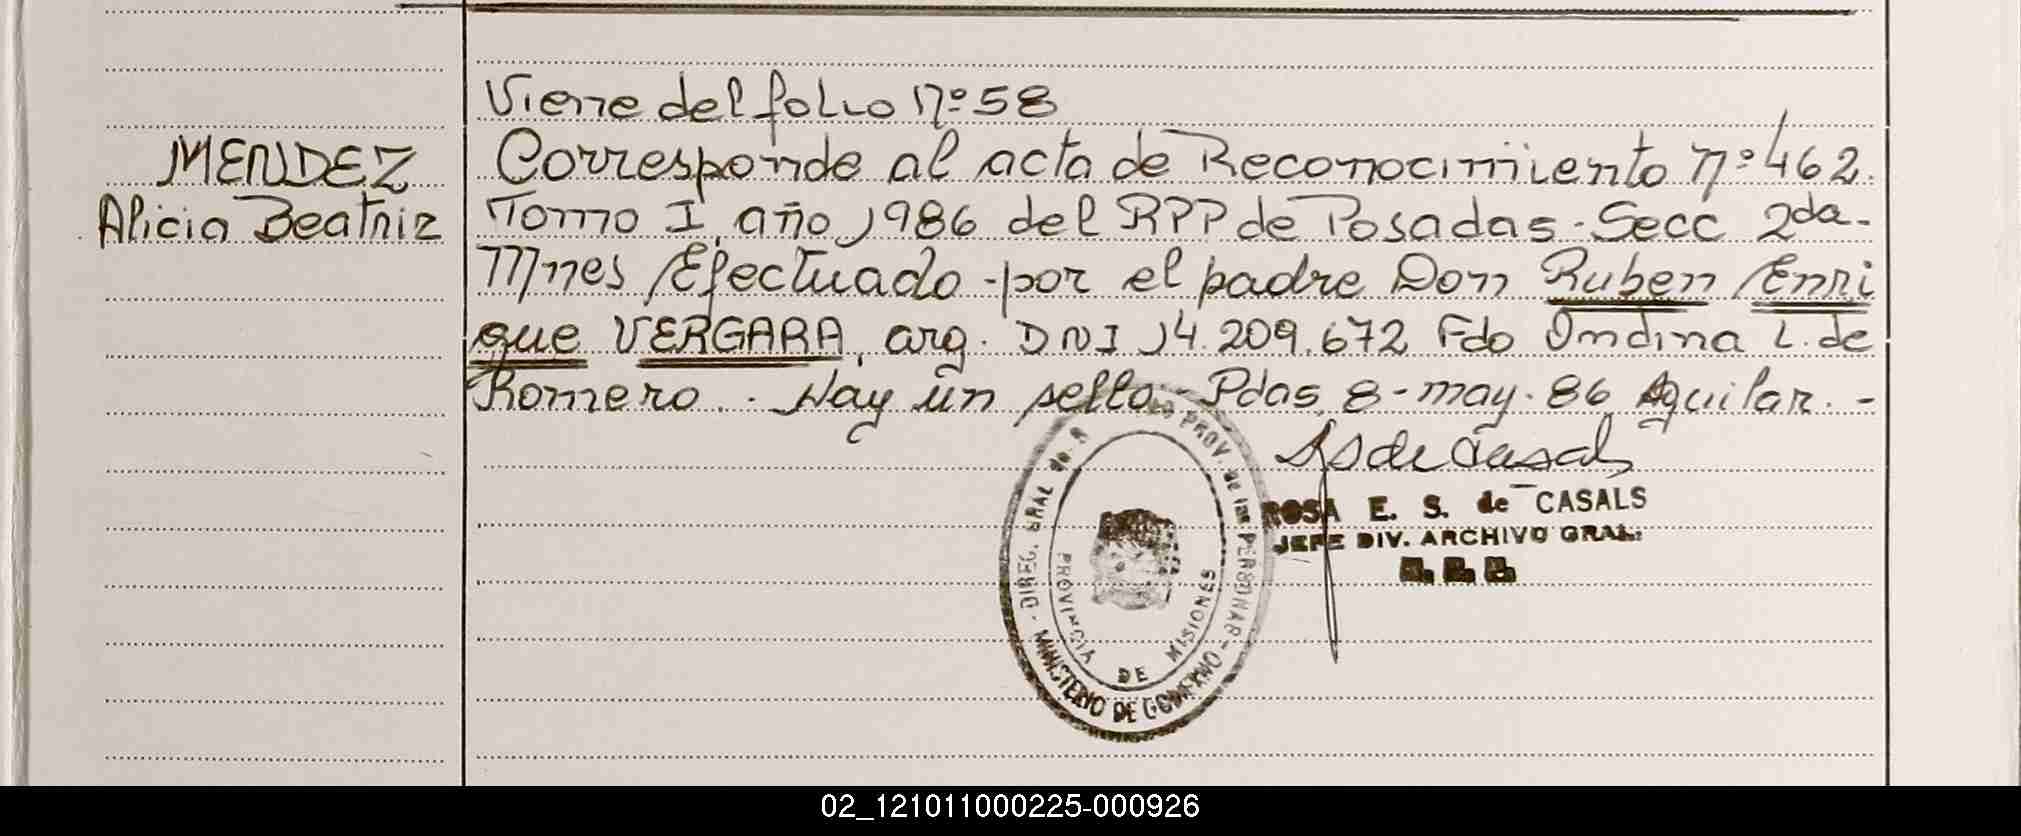 Viene del folio nº 58
MENDEZ
Alicia Beatriz
Corresponde al acta de Reconocimiento nº 462.
Tomo I, año 1986 del RPP de Posadas. Secc 2da-
Mnes Efectuado por el padre Don Ruben Enri
que VERGARA, arg. DNI 14.209.672 Fdo Ondina L. de
Romero.. Hay un sello. Pdas, 8-may.86 Aguilar.-
S de Casals
ROSA E. S. de CASALS
JEFE DIV. ARCHIVO GRAL.
DIREC. GRAL de PROV. de las PERSONAS
MINISTERIO DE GOBIERNO
PROVINCIA DE MISIONES
02_121011000225-000926